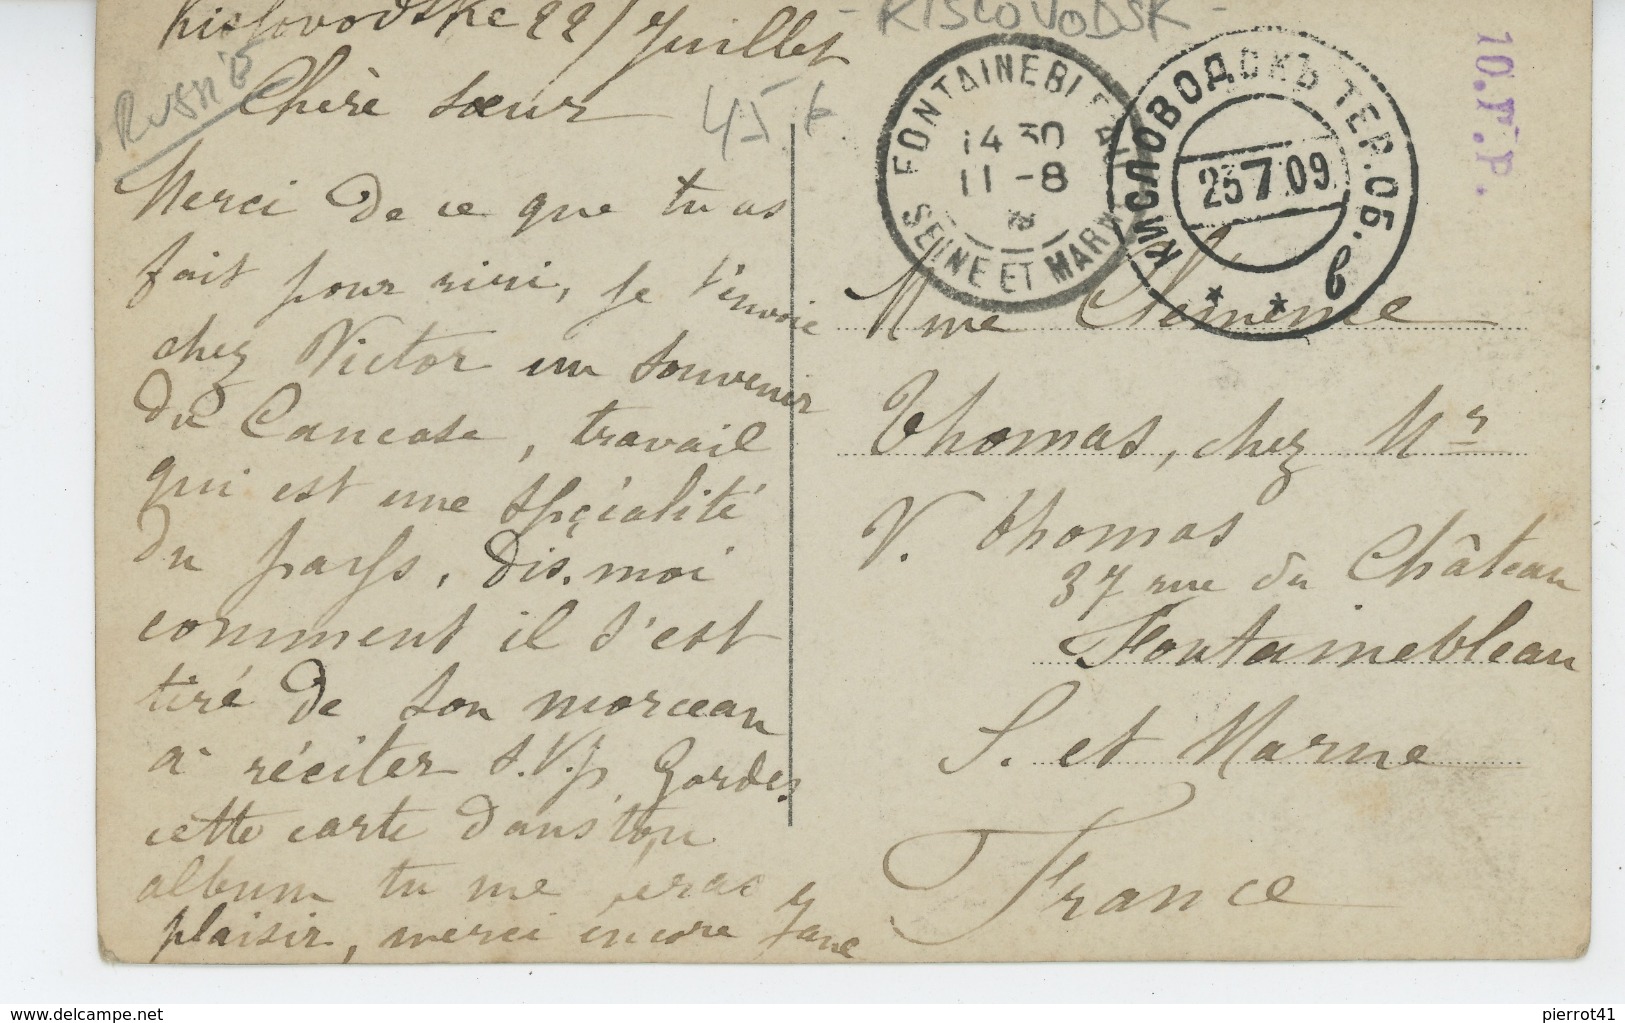 Kislovodske 22/Juillet
- KISLOVODSK -
RUSSIE
Chère sœur
45 €
Merci de ce que tu as
fait pour riri, je t'envoie
chez Victor un souvenir
du Caucase, travail
qui est une spécialité
du pays, dis-moi
comment il s'est
tiré de son morceau
à réciter S.V.p. Gardes
cette carte dans ton
album tu me feras
plaisir, merci encore Jane
FONTAINEBLEAU
14 30
11 -8
SEINE ET MARNE
КИСЛОВОДСКЪ ТЕР.ОБ.
25 7 09
в
10.F.P.
Mme Clémence
Thomas, chez Mr
V. Thomas
37 rue du Château
Fontainebleau
S. et Marne
France
delcampe.net
pierrot41